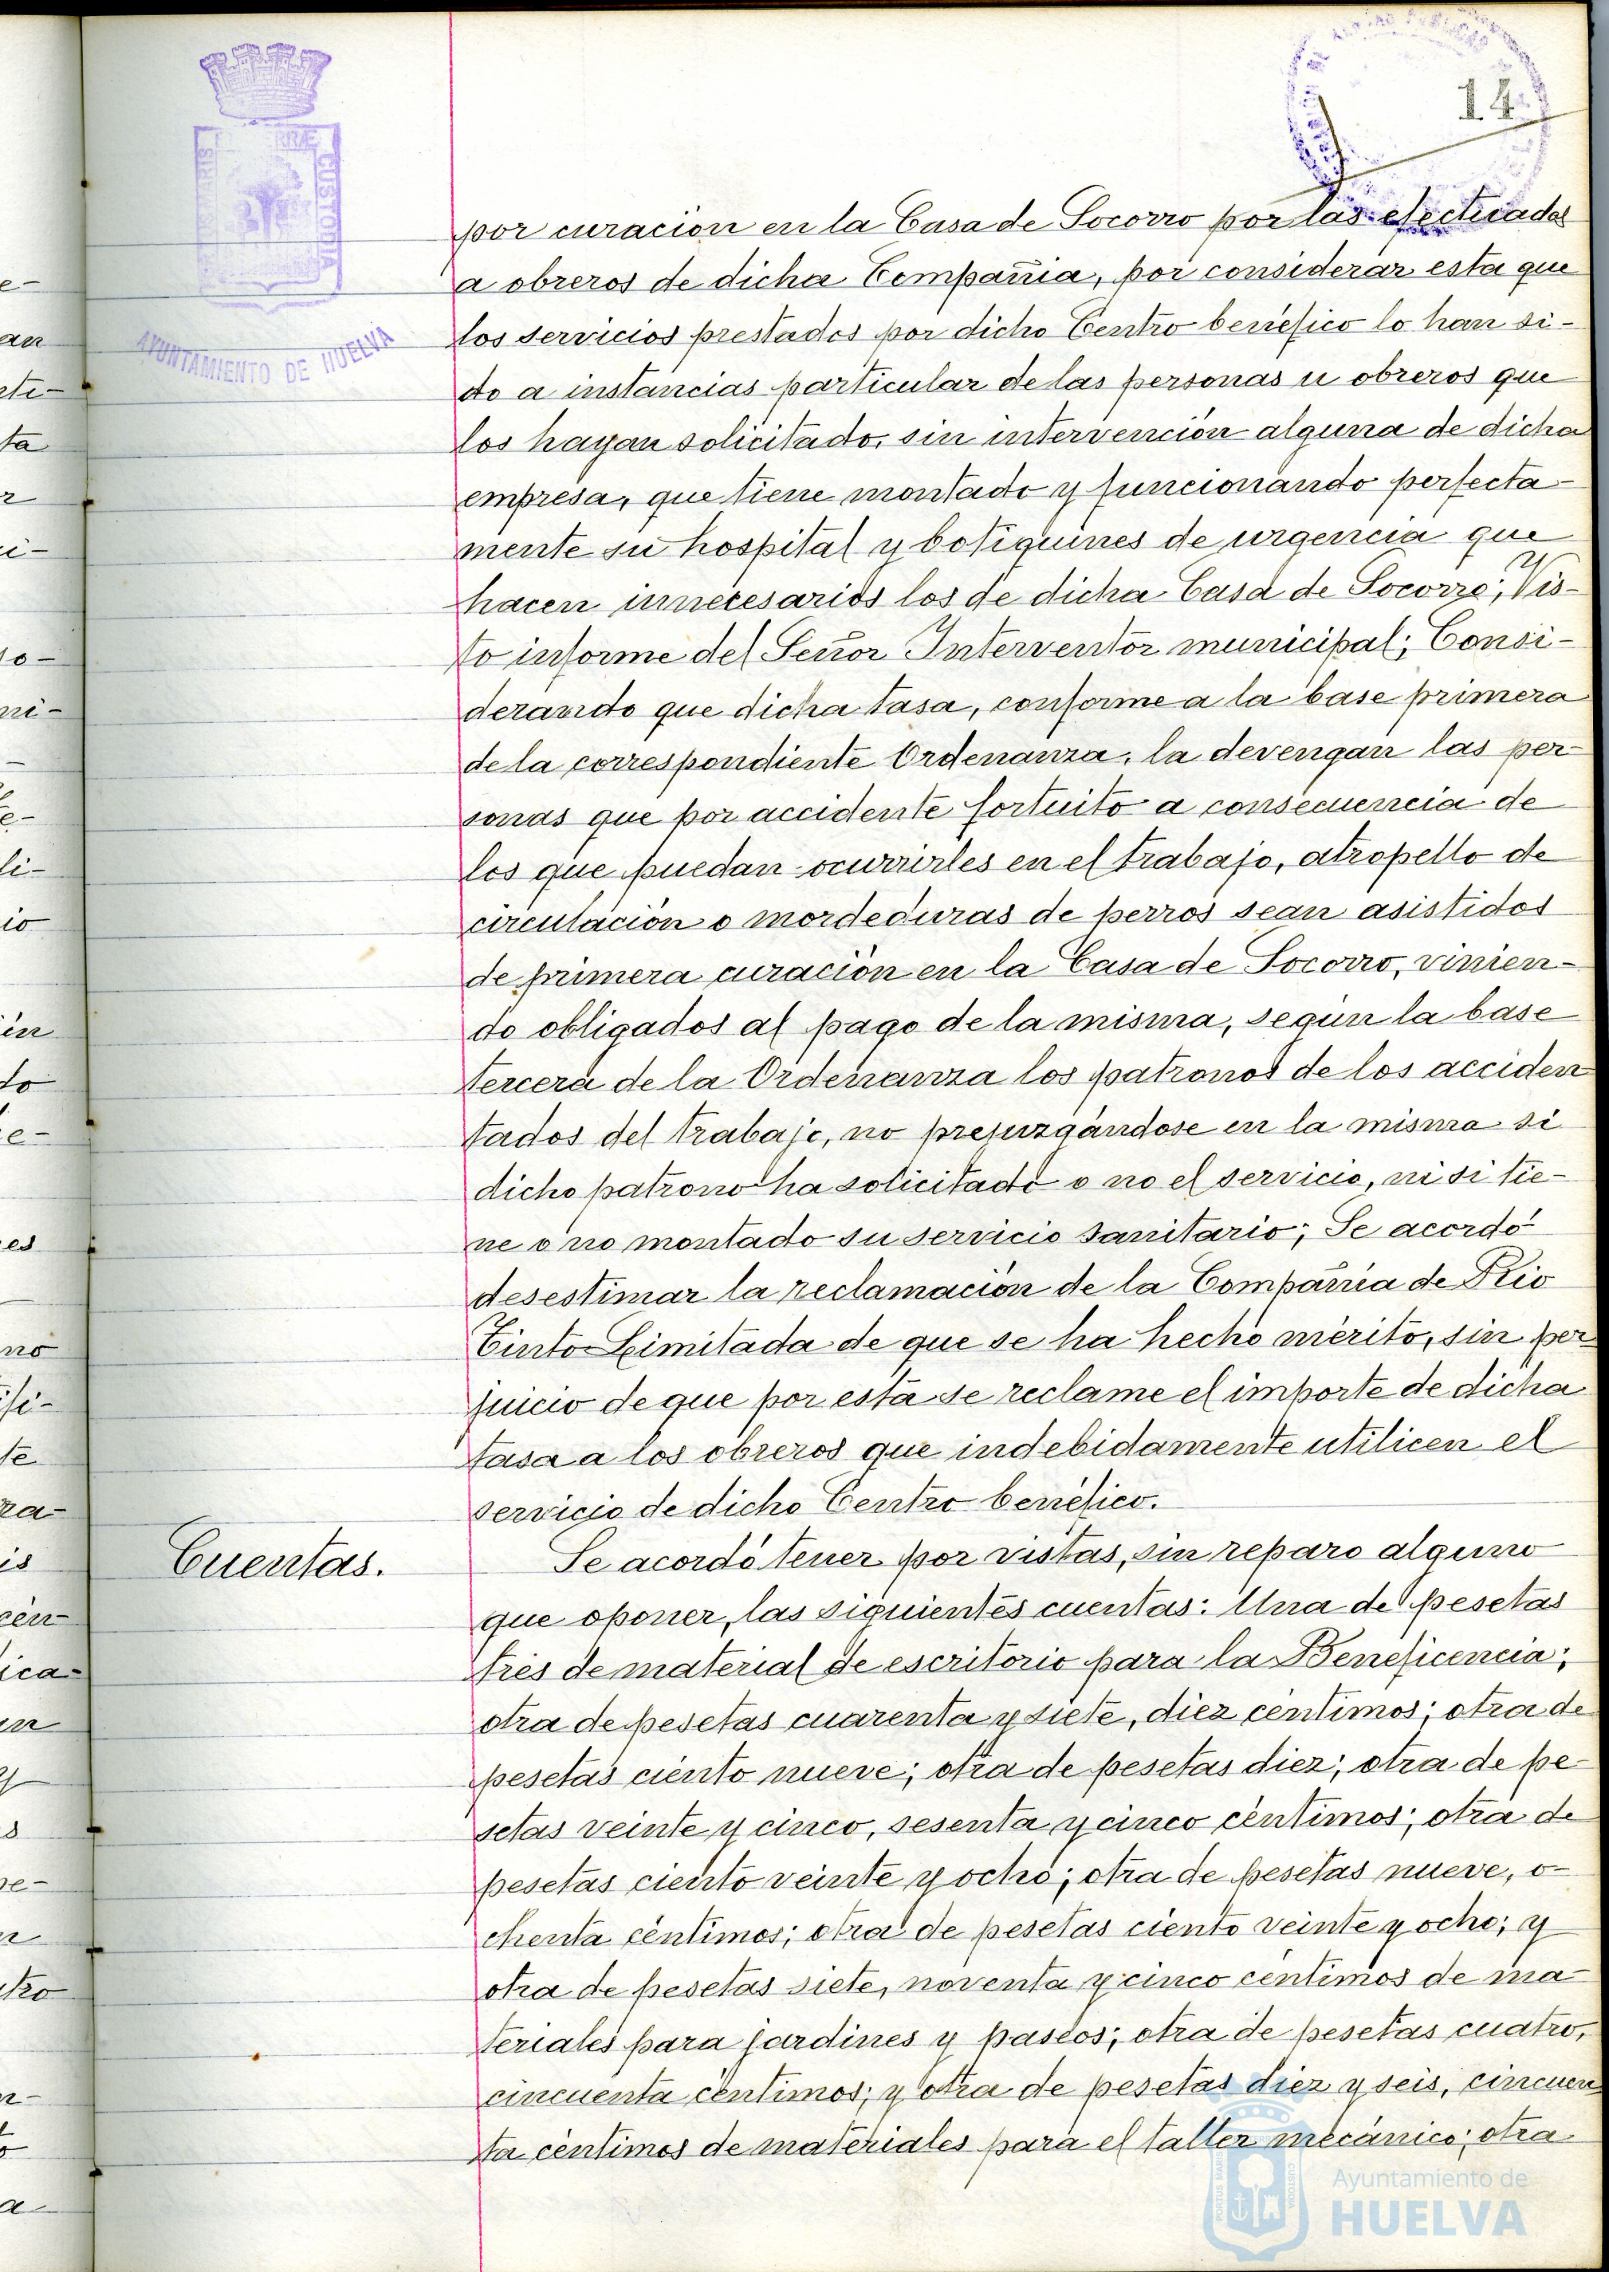 14
AYUNTAMIENTO DE HUELVA
por curación en la Casa de Socorro por las efectuadas
a obreros de dicha Compañia, por considerar esta que
los servicios prestados por dicho Centro benéfico lo han si-
do a instancias particular de las personas u obreros que
los hayan solicitado, sin intervención alguna de dicha
empresa, que tiene montado y funcionando perfecta-
mente su hospital y botiquines de urgencia que
hacen innecesarios los de dicha Casa de Socorro; Vis-
to informe del Señor Interventor municipal; Consi-
derando que dicha tasa, conforme a la base primera
de la correspondiente Ordenanza, la devengan las per-
sonas que por accidente fortuito a consecuencia de
los que puedan ocurrirles en el trabajo, atropello de
circulación o mordeduras de perros sean asistidos
de primera curación en la Casa de Socorro, vinien-
do obligados al pago de la misma, según la base
tercera de la Ordenanza los patronos de los acciden
tados del trabajo, no prejuzgándose en la misma si
dicho patrono ha solicitado o no el servicio, ni si tie-
ne o no montado su servicio sanitario; Se acordó
desestimar la reclamación de la Compañia de Rio
Tinto Limitada de que se ha hecho mérito, sin per
juicio de que por esta se reclame el importe de dicha
tasa a los obreros que indebidamente utilicen el
servicio de dicho Centro benéfico.
Cuentas.
Se acordó tener por vistas, sin reparo alguno
que oponer, las siguientes cuentas: Una de pesetas
tres de material de escritorio para la Beneficencia;
otra de pesetas cuarenta y siete, diez céntimos; otra de
pesetas ciento nueve; otra de pesetas diez; otra de pe
setas veinte y cinco, sesenta y cinco céntimos; otra de
pesetas ciento veinte y ocho; otra de pesetas nueve, o-
chenta céntimos; otra de pesetas ciento veinte y ocho; y
otra de pesetas siete, noventa y cinco centimos de ma
teriales para jardines y paseos; otra de pesetas cuatro,
cincuenta céntimos; y otra de pesetas diez y seis, cincuen
ta céntimos de materiales para el taller mecánico; otra
Ayuntamiento de
HUELVA